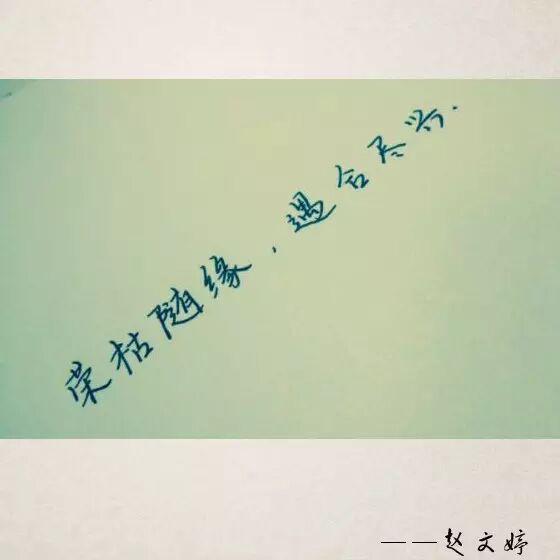 荣枯随缘，遇合尽兴.
——赵文婷